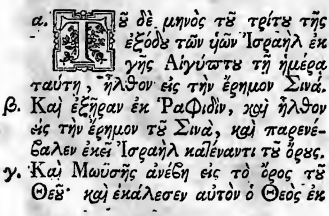 α. Τοῦ δὲ μηνὸς τοῦ τρίτου τῆς
ἐξόδου τῶν υἱῶν Ἰσραὴλ ἐκ
γῆς Αἰγύπτου τῇ ἡμέρᾳ
ταύτῃ, ἦλθον εἰς τὴν ἔρημον Σινά.
β. Καὶ ἐξῆραν ἐκ Ῥαφιδὶν, καὶ ἦλθον
εἰς τὴν ἔρημον τοῦ Σινά, καὶ παρενέ-
βαλεν ἐκεῖ Ἰσραὴλ κατέναντι τοῦ ὄρους.
γ. Καὶ Μωϋσῆς ἀνέβη εἰς τὸ ὄρος τοῦ
Θεοῦ· καὶ ἐκάλεσεν αὐτὸν ὁ Θεὸς ἐκ